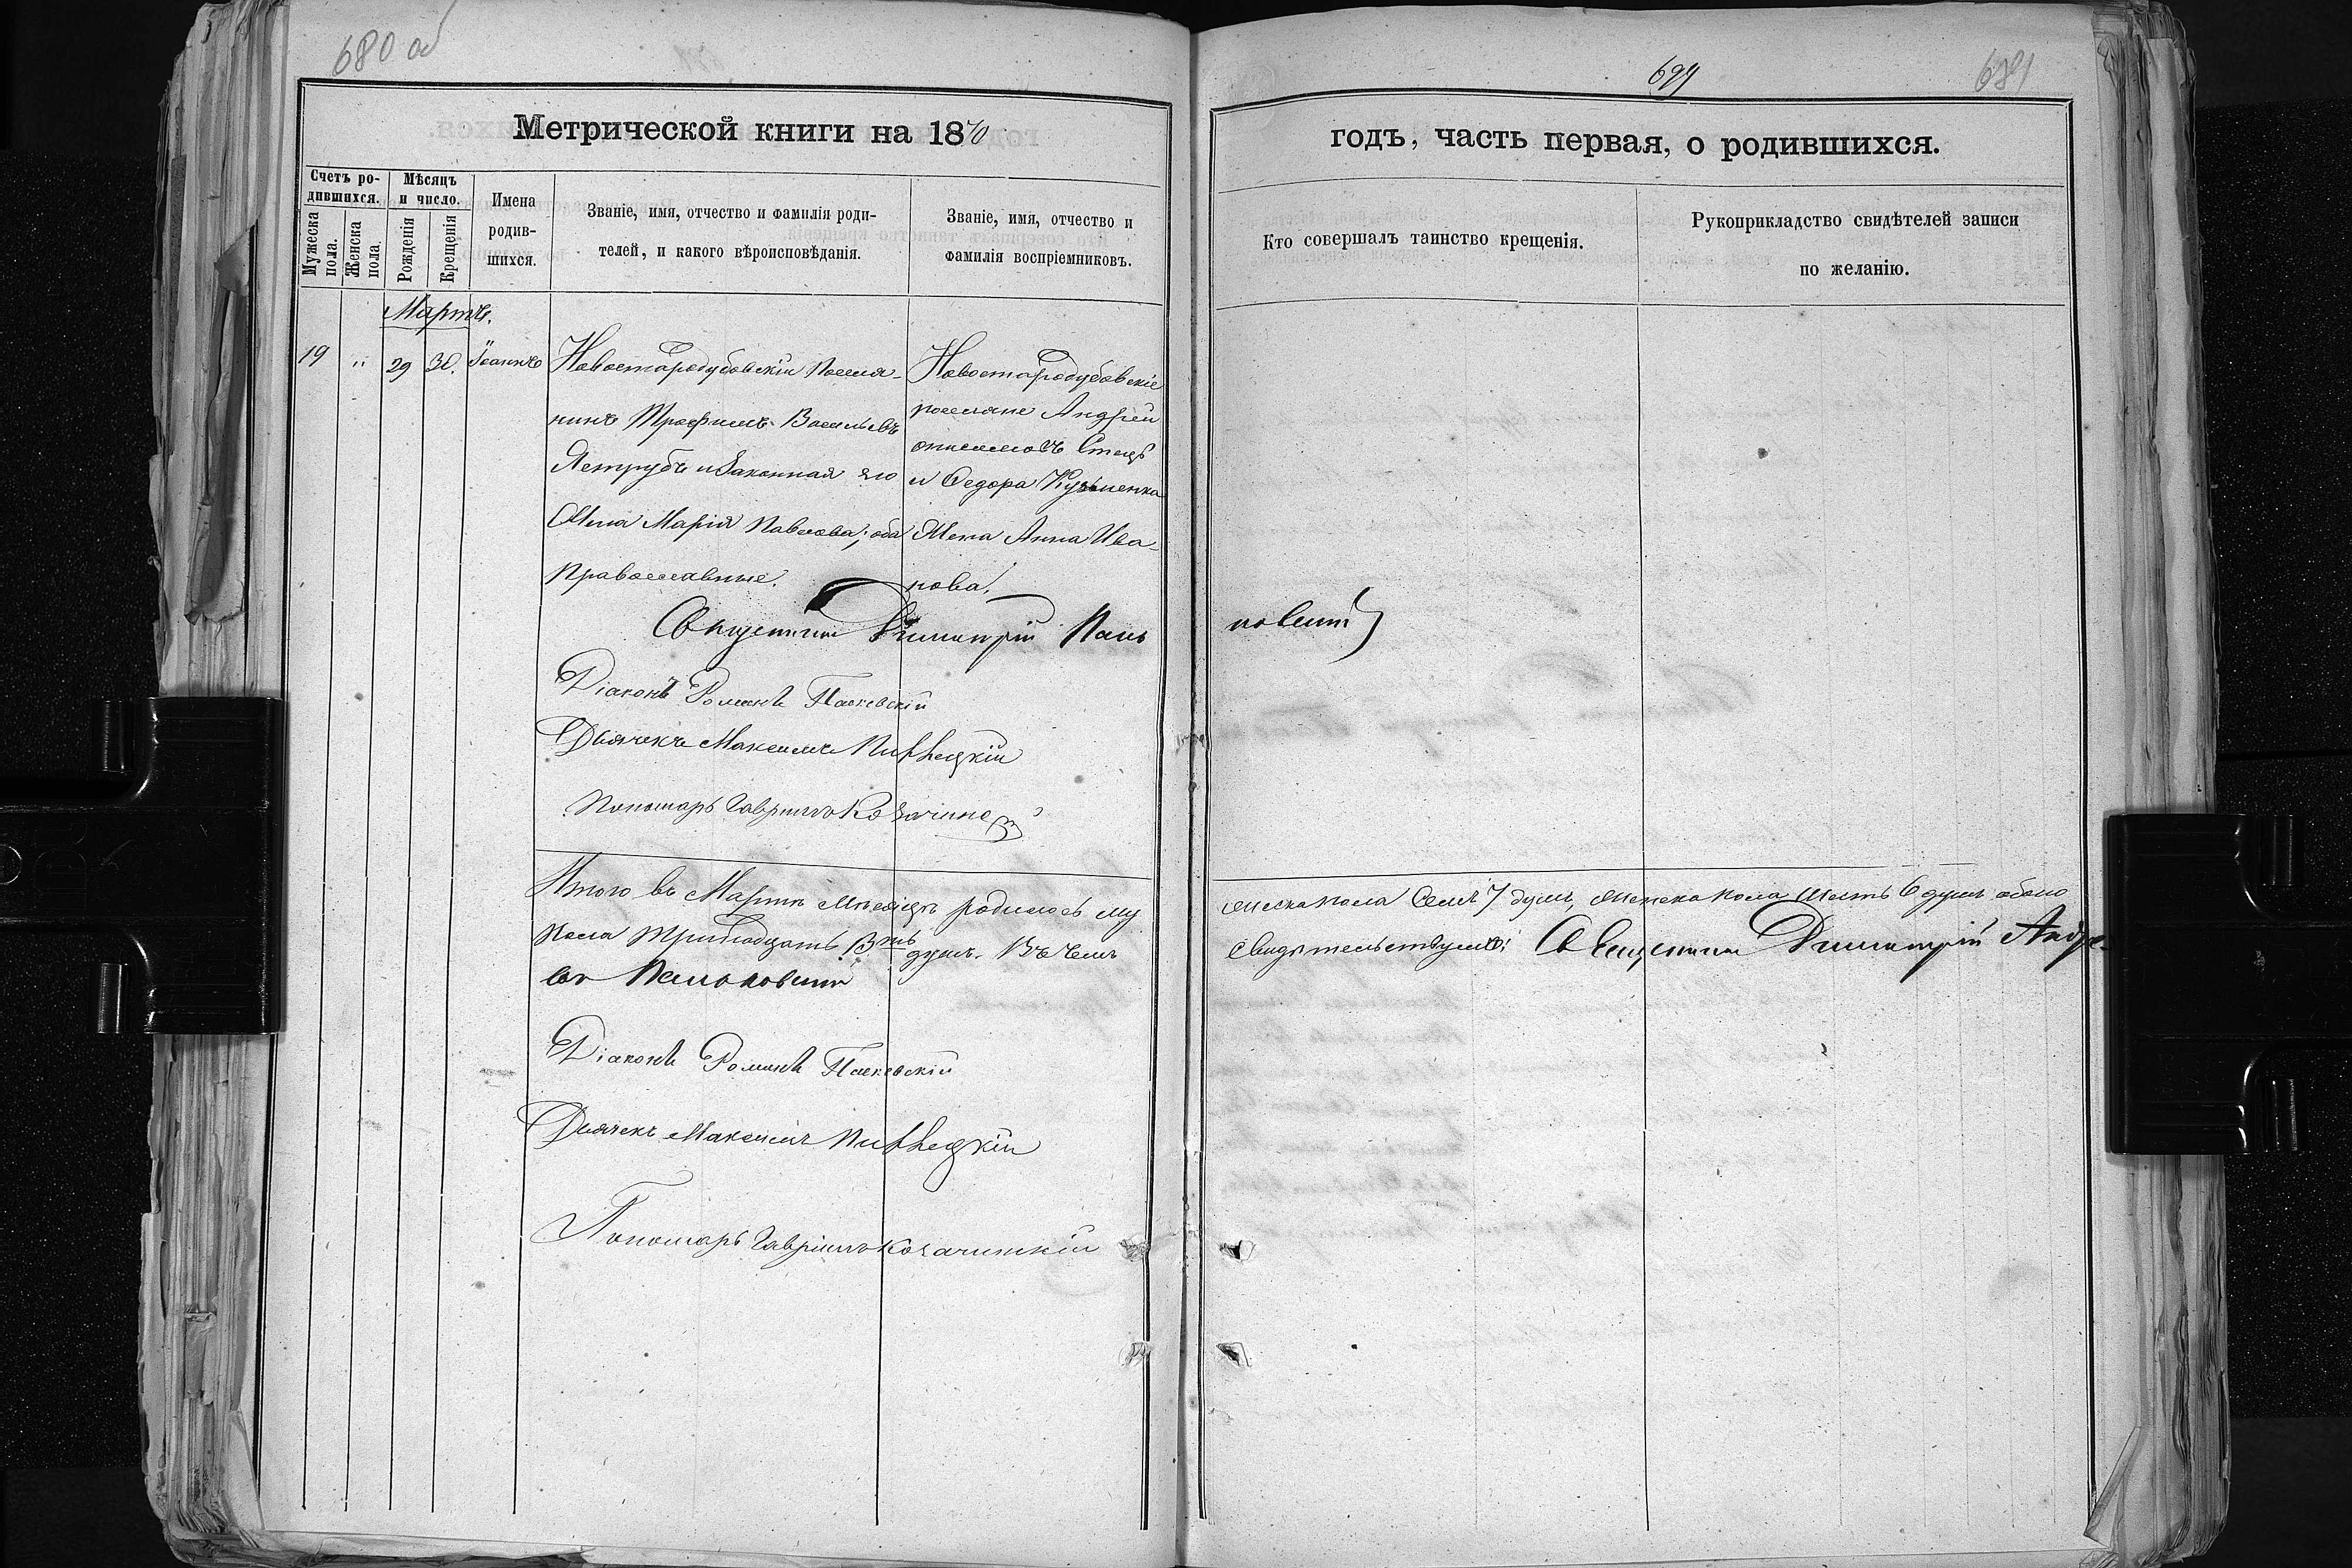 680 об
Метрической книги на 1870
Счетъ ро-
дившихся.
Мужеска
пола.
Женска
пола.
Мѣсяцъ
и число.
Рожденія
Крещенія
Имена
родив-
шихся.
Званіе, имя, отчество и фамилія роди-
телей, и какого вѣроисповѣданія.
Званіе, имя, отчество и
фамилія воспріемниковъ.
Мартъ.
19 „ 29 30. Іоаннъ
Новостародубовскій Поселя-
нинъ Трофимъ Васильевъ
Яструбъ и Законная его
Жена Марія Павлова; оба
Православные.
Новостародубовскіе
поселяне Андрей
Стець
и Федора Кузьменка
Жена Анна Ива-
нова.
Священникъ Димитрій Пань
Діаконъ Романъ Паскевскій
Дьячекъ Максимъ
Пономарь Гавріилъ
Итого въ Мартѣ мѣсяцѣ родилось му
пола Тринадцать 13ть душъ. Въ чемъ
Діаконъ Романъ Паскевскій
Дьячекъ Максимъ
Пономарь Гавріилъ Козачинскій
681
годъ, часть первая, о родившихся.
Кто совершалъ таинство крещенія.
Рукоприкладство свидѣтелей записи
по желанію.
жеска пола Семь 7 душъ, женска пола Шесть 6 душъ обоего
свидѣтельствуемъ: Священникъ Димитрій Андре-